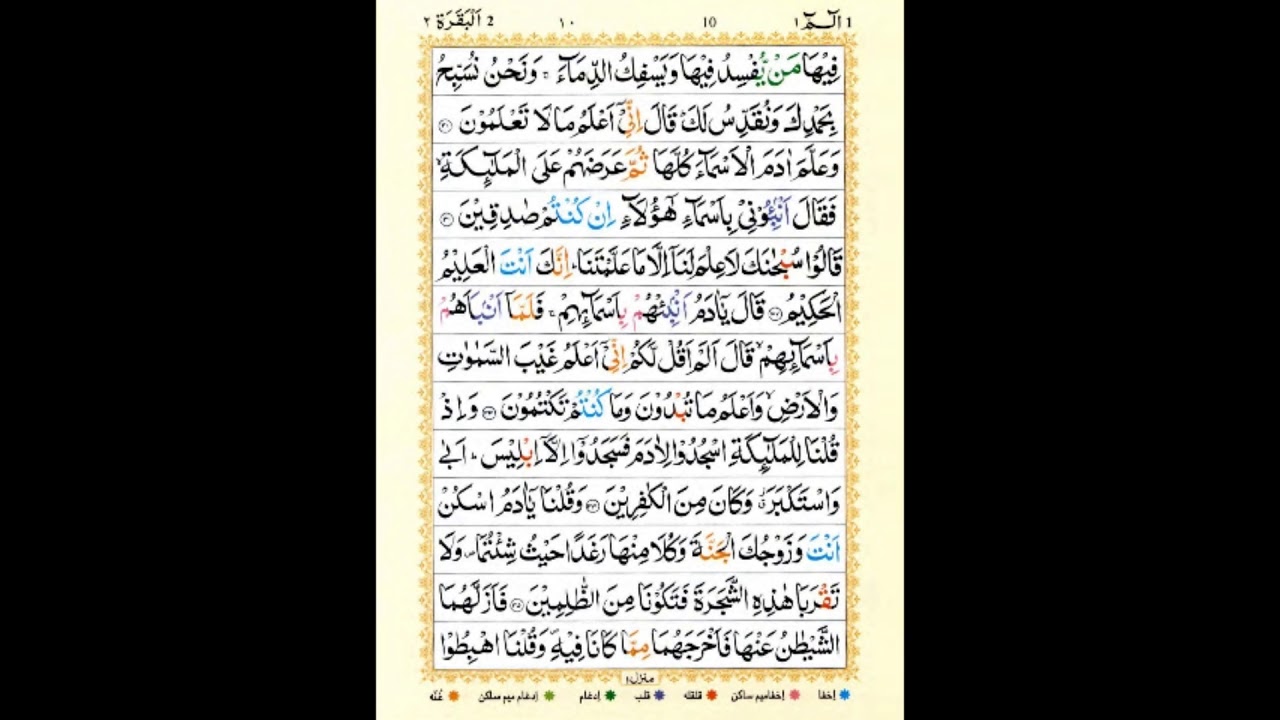 الٓمّٓ ۱ 1 10 ۱۰ 2 اَلْبَقَرَة ۲
فِيْهَا مَنْ يُّفْسِدُ فِيْهَا وَيَسْفِكُ الدِّمَآءَ ۚ وَنَحْنُ نُسَبِّحُ
بِحَمْدِكَ وَنُقَدِّسُ لَكَ ؕ قَالَ اِنِّىْۤ اَعْلَمُ مَا لَا تَعْلَمُوْنَ ۝۳۰
وَعَلَّمَ اٰدَمَ الْاَسْمَآءَ كُلَّهَا ثُمَّ عَرَضَهُمْ عَلَى الْمَلٰٓئِكَةِ ۙ
فَقَالَ اَنْۢبِـُٔوْنِىْ بِاَسْمَآءِ هٰٓؤُلَآءِ اِنْ كُنْتُمْ صٰدِقِيْنَ ۝۳۱
قَالُوْا سُبْحٰنَكَ لَا عِلْمَ لَنَاۤ اِلَّا مَا عَلَّمْتَنَا ؕ اِنَّكَ اَنْتَ الْعَلِيْمُ
الْحَكِيْمُ ۝۳۲ قَالَ يٰۤاٰدَمُ اَنْۢبِئْهُمْ بِاَسْمَآئِهِمْ ۚ فَلَمَّاۤ اَنْۢبَاَهُمْ
بِاَسْمَآئِهِمْ ۙ قَالَ اَلَمْ اَقُلْ لَّكُمْ اِنِّىْۤ اَعْلَمُ غَيْبَ السَّمٰوٰتِ
وَالْاَرْضِ ۙ وَاَعْلَمُ مَا تُبْدُوْنَ وَمَا كُنْتُمْ تَكْتُمُوْنَ ۝۳۳ وَاِذْ
قُلْنَا لِلْمَلٰٓئِكَةِ اسْجُدُوْا لِاٰدَمَ فَسَجَدُوْۤا اِلَّاۤ اِبْلِيْسَ ؕ اَبٰى
وَاسْتَكْبَرَ ۗ وَكَانَ مِنَ الْكٰفِرِيْنَ ۝۳۴ وَقُلْنَا يٰۤاٰدَمُ اسْكُنْ
اَنْتَ وَزَوْجُكَ الْجَنَّةَ وَكُلَا مِنْهَا رَغَدًا حَيْثُ شِئْتُمَا ۪ وَلَا
تَقْرَبَا هٰذِهِ الشَّجَرَةَ فَتَكُوْنَا مِنَ الظّٰلِمِيْنَ ۝۳۵ فَاَزَلَّهُمَا
الشَّيْطٰنُ عَنْهَا فَاَخْرَجَهُمَا مِمَّا كَانَا فِيْهِ ۪ وَقُلْنَا اهْبِطُوْا
منزل۱
اِخفا اِخفامیم ساکن قلقله قلب اِدغام اِدغام میم ساکن غُنّه